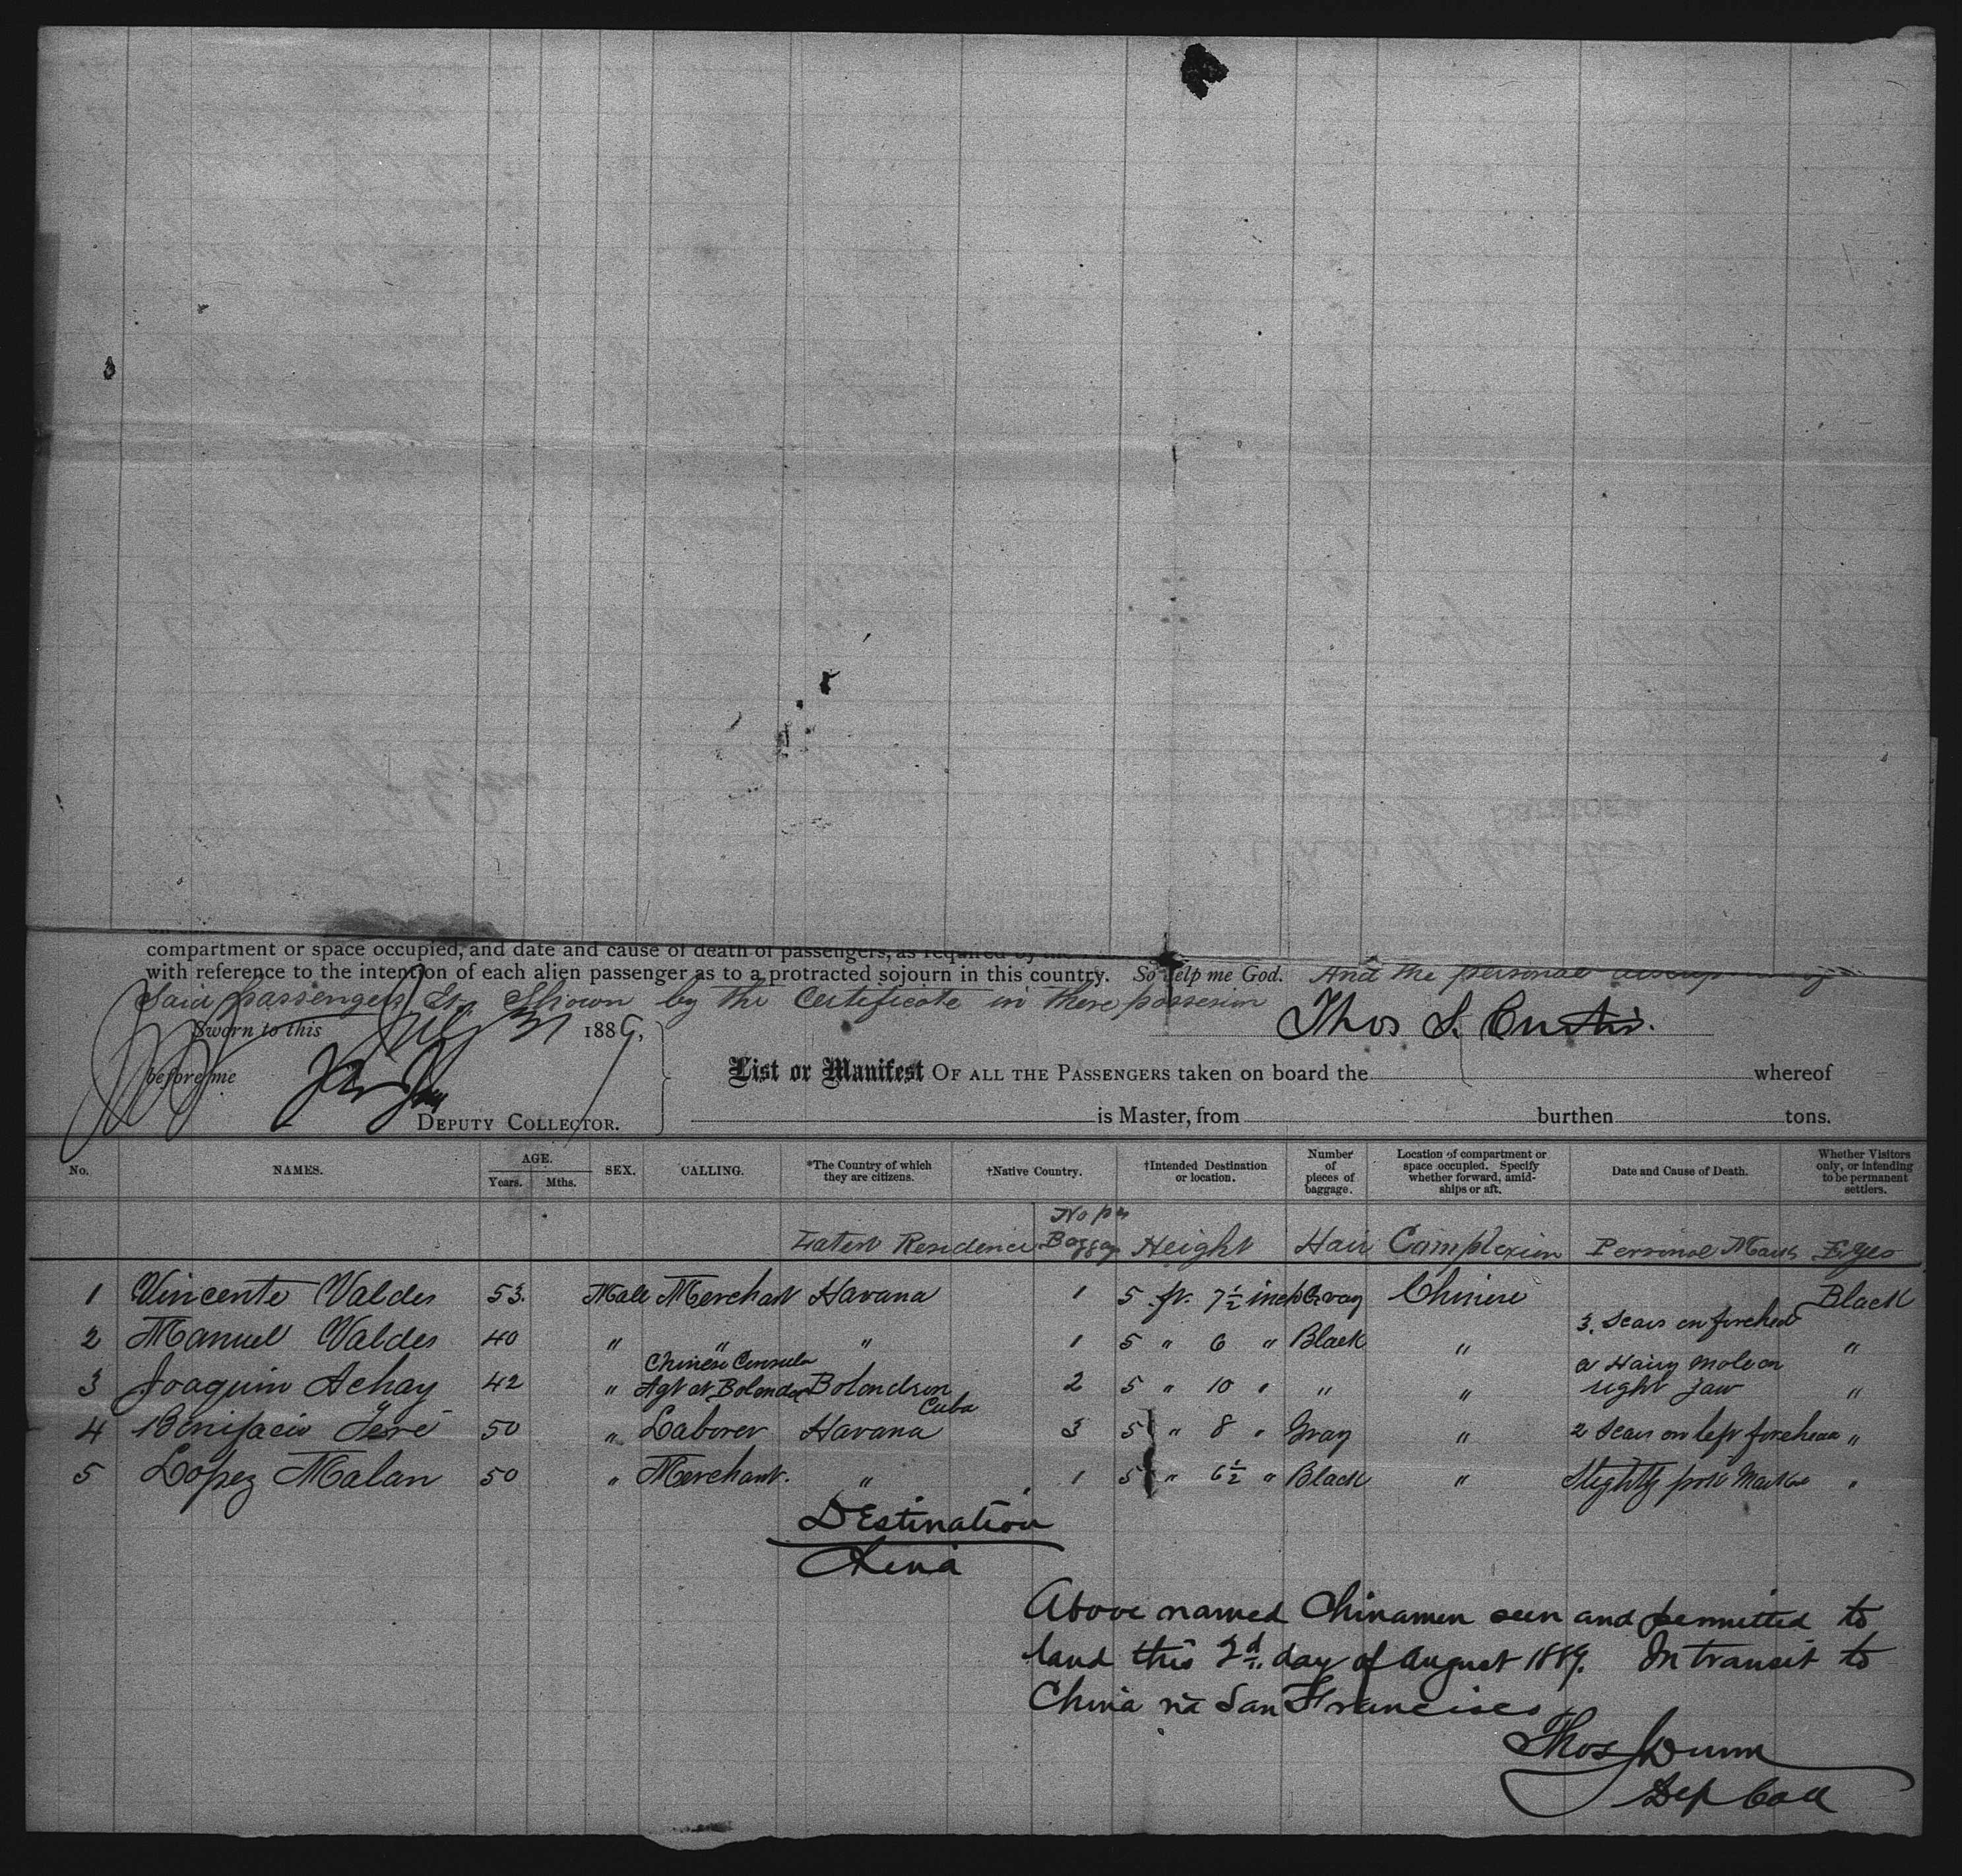 compartment or space occupied, and date and cause of death of passengers, as required by the
with reference to the intention of each alien passenger as to a protracted sojourn in this country. So help me God. And the personal
Said passengers Is Shown by the Certificate in there possesion
Sworn to this July 31 1889,
Thos S. Curtis.
before me
DEPUTY COLLECTOR.
List or Manifest OF ALL THE PASSENGERS taken on board the whereof
is Master, from burthen tons.
No. NAMES. AGE. Years. Mths. SEX. CALLING. *The Country of which they are citizens. †Native Country. †Intended Destination or location. Number of pieces of baggage. Location of compartment or space occupied. Specify whether forward, amidships or aft. Date and Cause of Death. Whether Visitors only, or intending to be permanent settlers.
Latest Residence No ps Baggage Height Hair Complexion Personal Marks Eyes
1 Vincente Valdes 53. Male Merchant Havana 1 5 ft. 7 1/2 inch Gray Chinese Black
2 Manuel Valdes 40 " " " 1 5 " 6 " Black " 3. Scars on forehead "
3 Joaquin Achay 42 " Chinese Consula Agt at Bolondron Bolondron Cuba 2 5 " 10 " " " a Hairy mole on right Jaw "
4 Bonifacio Jere 50 " Laborer Havana 3 5 " 8 " Gray " 2 Scars on left forehead "
5 Lopez Malan 50 " Merchant. " 1 5 " 6 1/2 " Black " Slightly pock Marked "
Destination
China
Above named Chinamen seen and permitted to
land this 2d day of August 1889. In transit to
China via San Francisco
Thos Dunn
Dep Coll